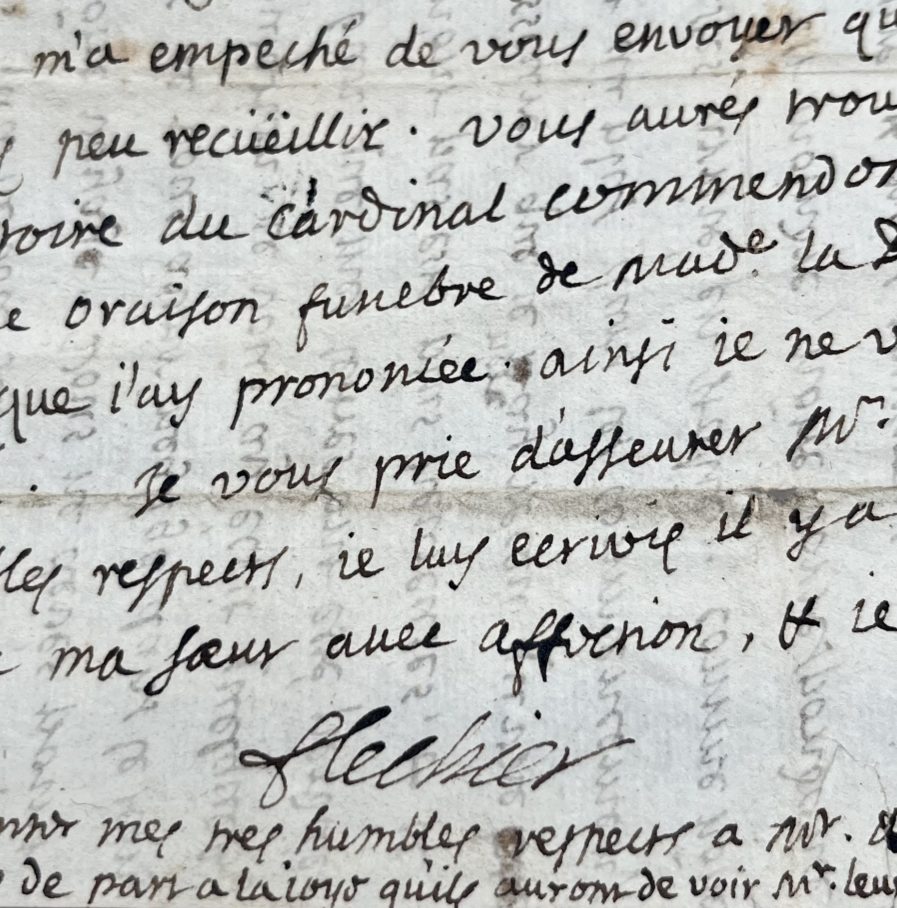 m'a empeché de vous envoyer qu
peu recüeillir. vous aurés trou
toire du cardinal commendon
e oraison funebre de mad.e la D
que i'ay prononcée. ainsi ie ne v
. Je vous prie d'asseurer Mr.
les respects, ie luy ecrivis il y a
ma sœur avec affection, & ie
flechier
mes tres humbles respects a Mr. d
de part a la ioye qu'ils auront de voir Mr. leur